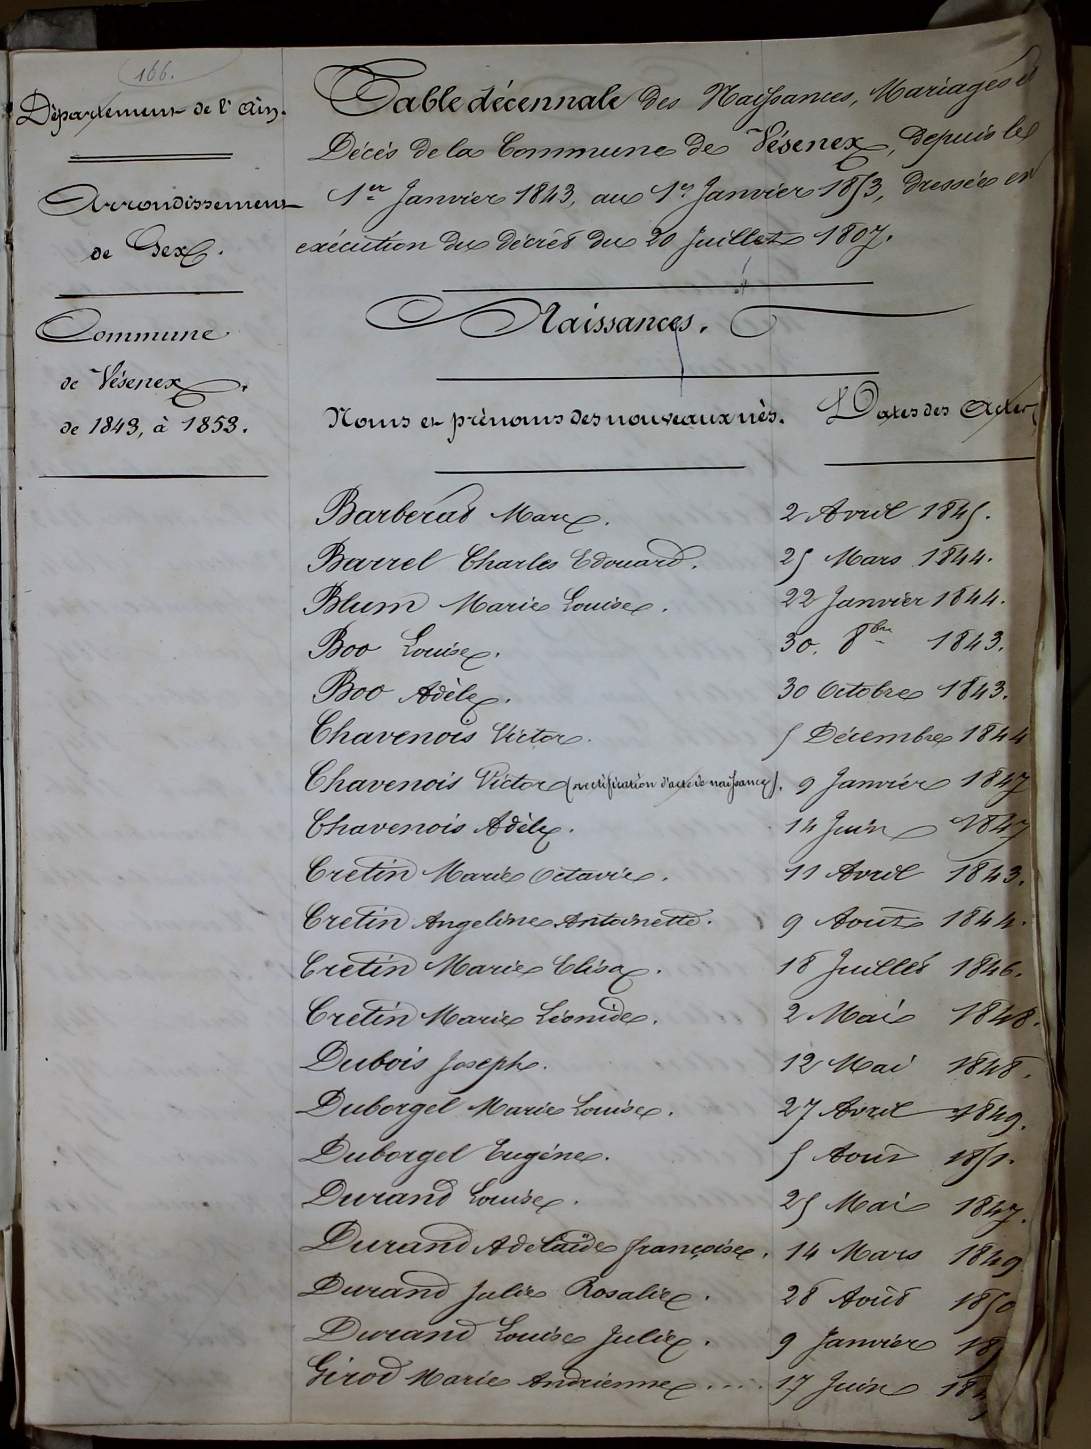 166.
Département de l'Ain.
Arrondissement
de Gex.
Commune
de Vésenex.
de 1843, à 1853.
Table décennale des Naissances, Mariages et
Décès de la Commune de Vésenex, depuis le
1er Janvier 1843, au 1er Janvier 1853, dressée en
exécution du décrêt du 20 Juillet 1807.
Naissances.
Noms et prénoms des nouveaux nés. Dates des Actes
Barberat Marie. 2 Avril 1845.
Barrel Charles Edouard. 25 Mars 1844.
Blum Marie Louise. 22 Janvier 1844.
Boo Louise. 30. 8bre 1843.
Boo Adèle. 30 Octobre 1843.
Chavenois Victor. 5 Décembre 1844
Chavenois Victor (rectification d'acte de naissance). 9 Janvier 1847
Chavenois Adèle. 14 Juin 1847
Cretin Marie Octavie. 11 Avril 1843.
Cretin Angeline Antoinette. 9 Aout 1844.
Cretin Marie Elisa. 18 Juillet 1846.
Cretin Marie Léonide. 2 Mai 1848.
Dubois Joseph. 12 Mai 1848.
Duborgel Marie Louise. 27 Avril 1849.
Duborgel Eugéne. 5 Aout 1851.
Durand Louise. 25 Mai 1847.
Durand Adelaïde françoise. 14 Mars 1849
Durand Julie Rosalie. 28 Août 1850
Durand Louise Julie. 9 Janvier
Girod Marie Andrienne .... 17 Juin